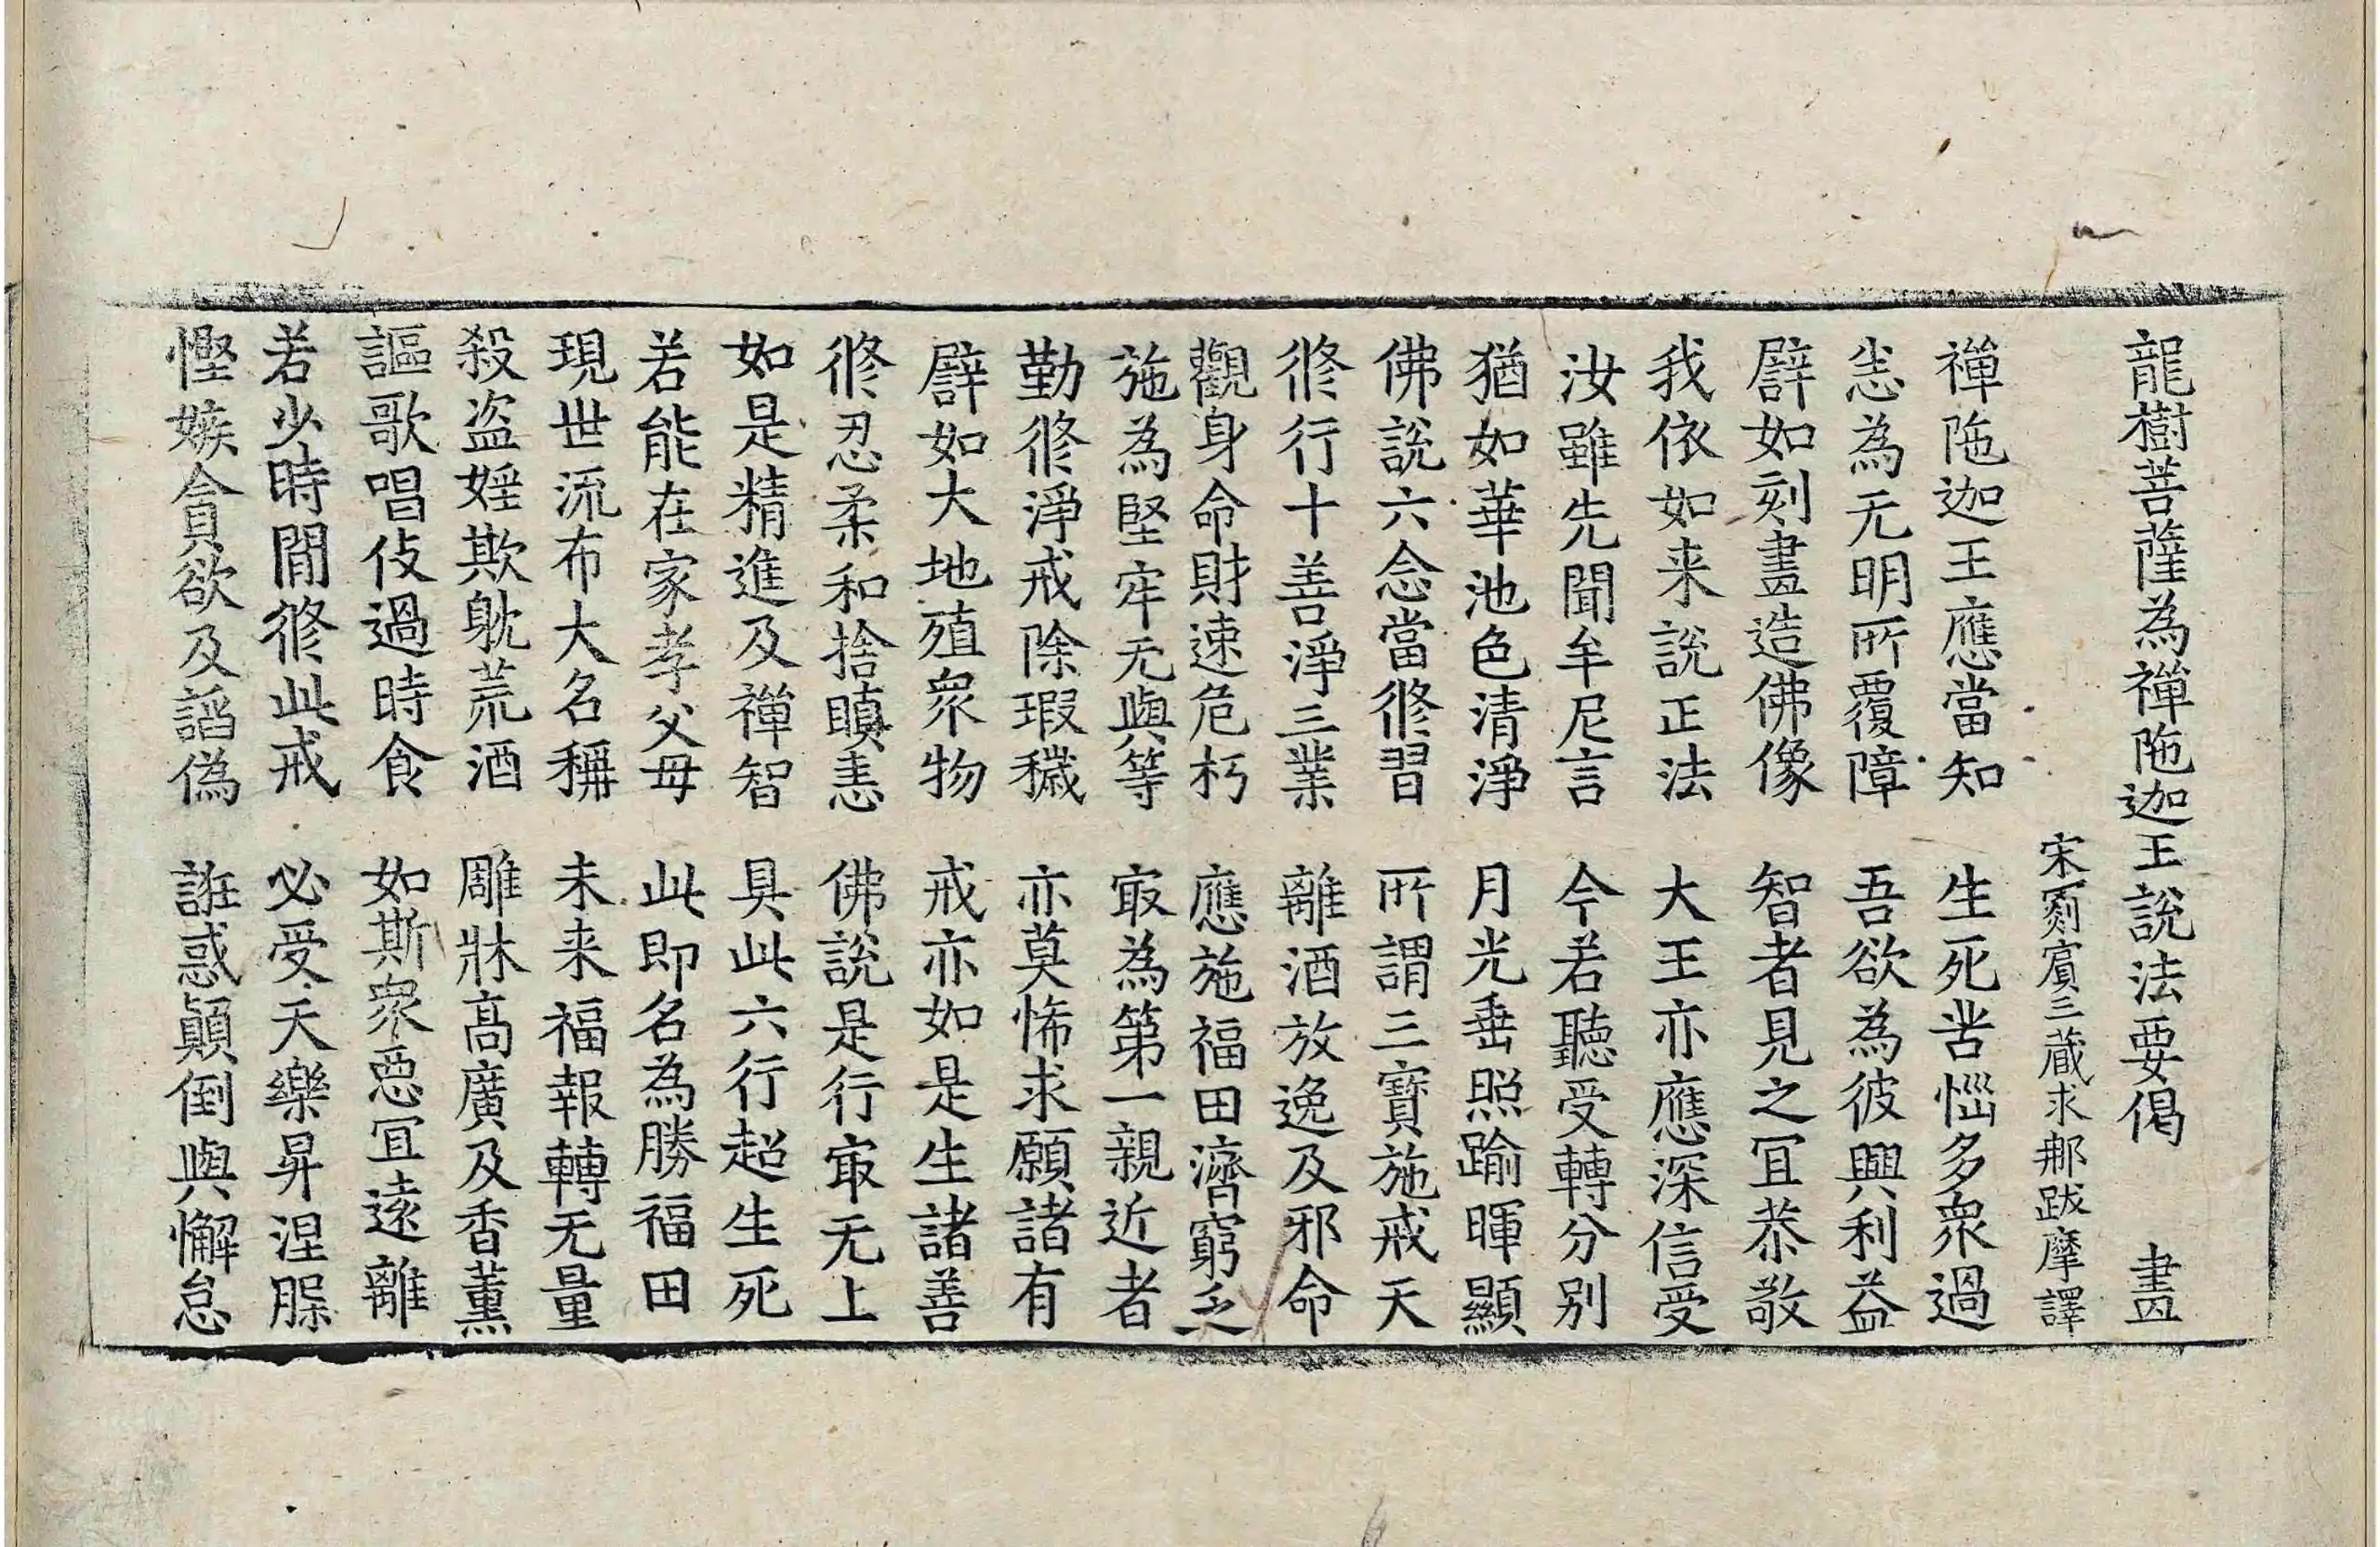 龍樹菩薩為禪陁迦王說法要偈 畫
宋罽賓三藏求𨙻跋摩譯
禪陁迦王應當知 生死苦惱多衆過
悉為无明所覆障 吾欲為彼興利益
譬如刻畫造佛像 智者見之冝恭敬
我依如来說正法 大王亦應深信受
汝雖先聞牟尼言 今若聽受轉分別
猶如華池色清淨 月光垂照踰暉顯
佛說六念當修習 所謂三寶施戒天
修行十善淨三業 離酒放逸及邪命
觀身命財速危朽 應施福田濟窮乏
施為堅牢无與等 㝡為第一親近者
勤修淨戒除瑕穢 亦莫悕求願諸有
譬如大地殖衆物 戒亦如是生諸善
修忍柔和捨瞋恚 佛說是行㝡无上
如是精進及禪智 具此六行超生死
若能在家孝父母 此即名為勝福田
現世流布大名稱 未来福報轉无量
殺盗婬欺躭荒酒 雕牀高廣及香薰
謳歌唱伎過時食 如斯衆惡冝遠離
若少時間修此戒 必受天樂昇涅槃
慳嫉貪欲及諂偽 誑惑顛倒與懈怠